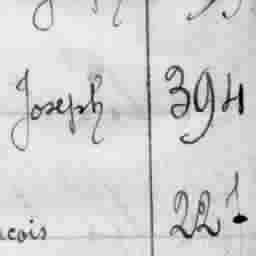 Joseph 394
çois 221